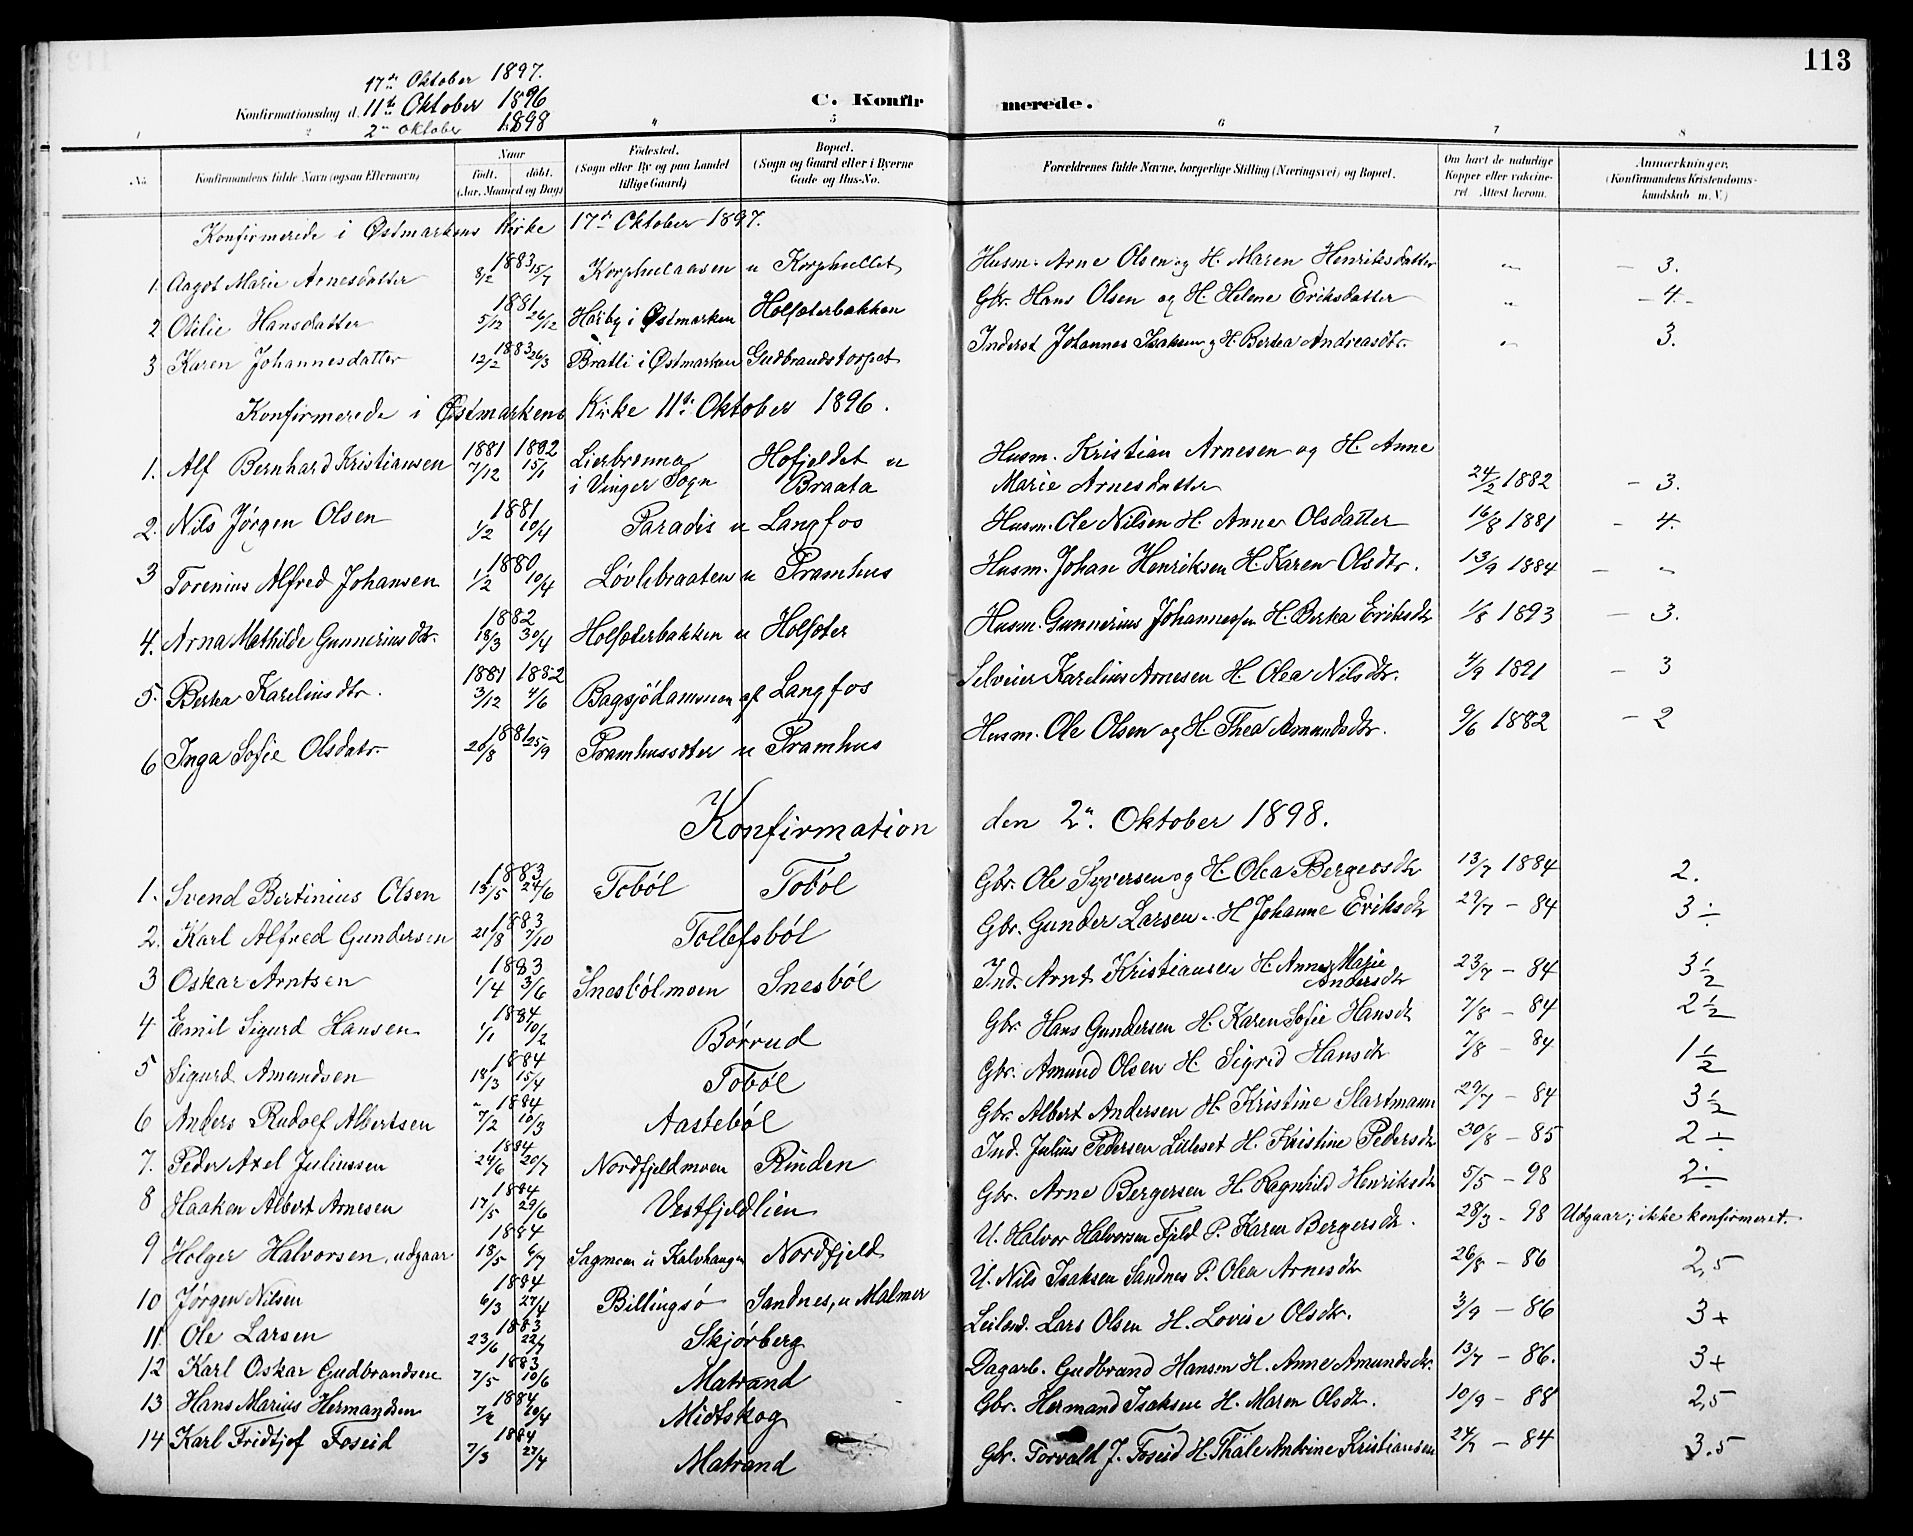 113
17de Oktober 1897.
Konfirmationsdag d. 11te Oktober 1896
2den Oktober 1898
C. Konfirmerede.
1 2 4 5 6 7 8
No. Konfirmandens fulde Navn (ogsaa Efternavn) Naar født. døbt. (Aar, Maaned og Dag) Fødested. (Sogn eller By og paa Landet tillige Gaard) Bopæl. (Sogn og Gaard eller i Byerne Gade og Hus-No. Forældrenes fulde Navne, borgerlige Stilling (Næringsvei) og Bopæl. Om havt de naturlige Kopper eller vaccineret Attest herom. Anmærkninger. (Konfirmandens Kristendomskundskab m. V.)
Konfirmerede i Østmarkens Kirke 17de Oktober 1897.
1. Aagot Marie Arnesdatter 1883 8/2 15/7 Korphulaasen u Korphullet Husm. Arne Olsen og H. Maren Henriksdatter " – 3.
2 Otilie Hansdatter 1881 5/12 26/12 Haiby i Østmarken Holsæterbakken Gbr. Hans Olsen og H. Helene Eriksdatter " – 4 –
3 Karen Johannesdatter 1883 12/2 26/3 Bratli i Østmarken Gudbrandstorpet Inderst Johannes Isaksen og H. Berthea Andreasdtr. " 3.
Konfirmerede i Østmarkens Kirke 11te Oktober 1896.
1. Alf Bernhard Kristiansen 1881 7/12 1882 15/1 Lierbrænna i Vinger Sogn Hofjeldet u Braata Husm. Kristian Arnesen og H. Anne Marie Arnesdatter 24/2 1882 – 3.
2. Nils Jørgen Olsen 1881 1/2 10/4 Paradis u Langfos Husm. Ole Nilsen H. Anne Olsdatter 16/8 1881 – 4.
3 Torenius Alfred Johansen 1880 1/2 10/4 Løvlibraaten u Pramhus Husm. Johan Henriksen H. Karen Olsdtr. 13/9 1884 – "
4. Arna Mathilde Gunneriusdtr. 1882 18/3 30/4 Holsæterbakken u Holsæter Husm. Gunnerius Johannessen H. Berthea Eriksdtr 1/8 1893 – 3.
5. Berthea Kareliusdtr. 1881 3/12 1882 4/6 Bagsjødammen af Langfos Selveier Karelius Arnesen H. Olea Nilsdtr. 4/9 1891 – 3
6 Inga Sofie Olsdatr. 1881 26/8 25/9 Pramhussæter u Pramhus Husm. Ole Olsen og H. Thea Amundsdtr. 9/6 1882 – 2
Konfirmation den 2den Oktober 1898.
1. Svend Bertinius Olsen 1883 15/5 24/6 Toböl Toböl Gbr. Ole Syversen og H. Olea Bergersdtr 13/7 1884 2.
2. Karl Alfred Gundersen 1883 21/8 7/10 Tollefsböl Gbr. Gunder Larsen. H Johanne Eriksdtr 29/7 – 84 3 ÷
3 Oskar Arntsen 1883 1/4 3/6 Snesbölmoen Snesböl Ind. Arnt Kristiansen H. Anne Marie Andersdtr 23/7 – 84 3 1/2
4 Emil Sigurd Hansen 1884 1/1 10/2 Börrud Gbr. Hans Gundersen H. Karen Sofie Hansdtr 7/8 – 84 2 1/2
5 Sigurd Amundsen 1884 18/3 15/4 Toböl Gbr. Amund Olsen H. Sigrid Hansdtr 7/8 – 84 1 1/2
6 Anders Rudolf Albertsen 1884 7/2 10/3 Aasteböl Gbr. Albert Andersen H. Kristine Slartmann 29/7 – 84 3 1/2
7. Peder Axel Juliussen 1884 24/6 20/7 Nordfjeldmoen Rinden Ind. Julius Pedersen Lilleset H. Kristine Pedersdtr 30/8 – 85 2 ÷
8 Haaken Albert Arnesen 1884 17/5 29/6 Vestfjeldlien Gbr. Arne Bergersen H. Ragnhild Henriksdtr 5/5 – 98 2 ÷
9 Holger Halvorsen, udgaar 1884 18/5 6/7 Sagmoen u Kalvhaugen Nordfjeld U. Halvor Halvorsen Fjeld P. Karen Bergersdtr. 28/3 – 98 Udgaar; ikke konfirmeret.
10 Jørgen Nilsen 1884 6/3 27/4 Billingsö Sandnes, u Malmer U. Nils Isaksen Sandnes P. Olea Arnesdtr 26/8 – 86 2,5
11. Ole Larsen 1883 23/6 22/7 Skjörberg Leilend. Lars Olsen H. Lovise Olsdtr. 3/9 – 86 3+
12 Karl Oskar Gudbrandsen 1883 7/5 10/6 Matrand Dagarb. Gudbrand Hansen H. Anne Amundsdtr. 13/7 – 86. 3+
13 Hans Marius Hermandsen 1884 7/2 10/4 Midtskog Gbr. Hermand Isaksen H. Maren Olsdtr. 10/9 – 88 2,5
14 Karl Fridtjof Foseid 1884 7/3 27/4 Matrand Gbr. Torvald J. Foseid H. Thale Andrine Kristiansen 24/7 – 84 3.5